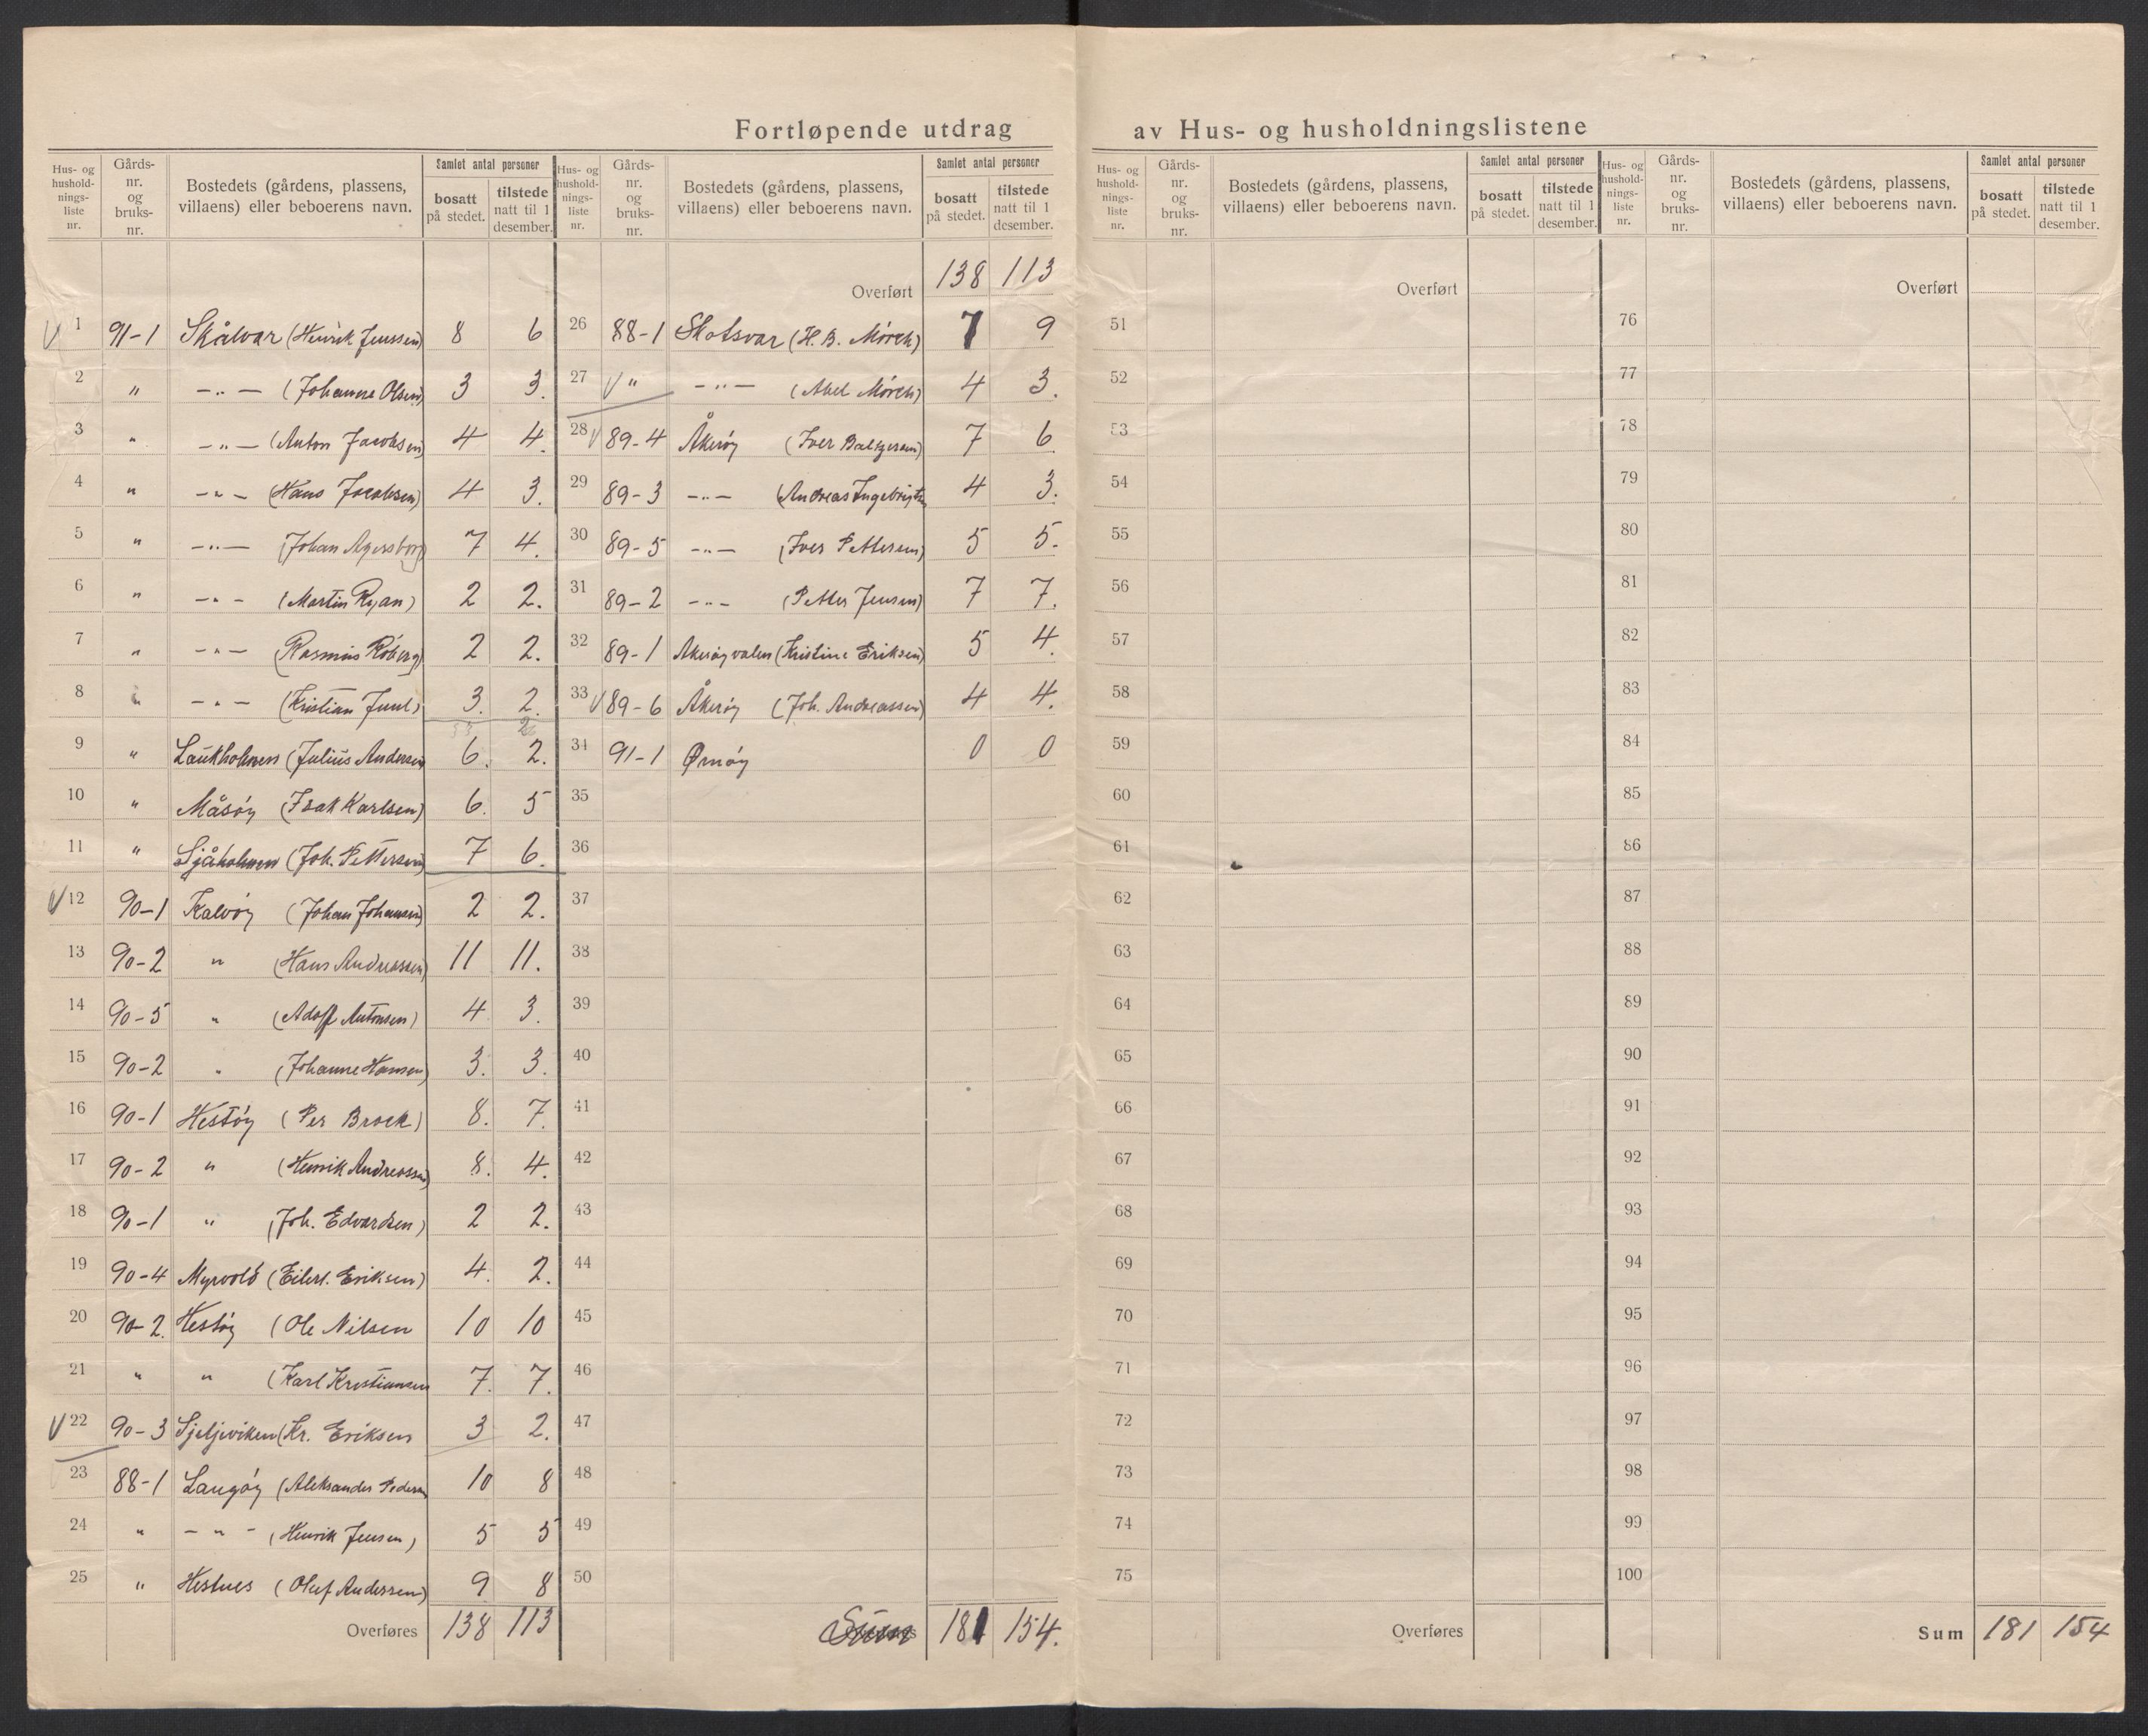 Fortløpende utdrag av Hus- og husholdningslistene
Hus- og hushold-nings-liste nr. Gårds-nr. og bruks-nr. Bostedets (gårdens, plassens, villaens) eller beboerens navn. Samlet antal personer bosatt på stedet. tilstede natt til 1 desember.
1 91-1 Skålvar (Henrik Jenssen) 8 6
2 " -"- (Johanne Olsen) 3 3.
3 " -"- (Anton Jacobsen) 4 4.
4 " -"- (Hans Jacobsen) 4 3.
5 " -"- (Johan Agersborg) 7 4.
6 " -"- (Martin Ryan) 2 2.
7 " -"- (Rasmus Röberg) 2 2.
8 " -"- (Kristian Juul) 3. 2.
33 26
9 " Laukholmen (Julius Andersen 6. 2.
10 " Måsöy (Isak Karlsen) 6. 5
11 " Sjåholmen (Joh. Pettersen) 7 6.
12 90-1 Kalvöy (Johan Johansen) 2 2.
13 90-2 " (Hans Andreassen) 11 11.
14 90-5 " (Adolf Antonsen) 4 3.
15 90-2 " (Johanne Hansen) 3. 3.
16 90-1 Hestöy (Per Brock) 8. 7.
17 90-2 " (Henrik Andreassen) 8. 4.
18 90-1 " (Joh. Edvardsen) 2 2.
19 90-4 Myrvold (Eilert. Eriksen) 4. 2.
20 90-2. Hestöy (Ole Nilsen 10 10
21 " " (Karl Kristiansen 7. 7.
22 90-3 Sjeljeviken (Kr. Eriksen 3 2.
23 88-1 Langöy (Aleksander Pedersen 10 8
24 " - " - (Henrik Jensen) 5 5
25 " Hestnes (Oluf Andersen) 9 8
Overføres 138 113
Hus- og hushold-nings-liste nr. Gårds-nr. og bruks-nr. Bostedets (gårdens, plassens, villaens) eller beboerens navn. Samlet antal personer bosatt på stedet. tilstede natt til 1 desember.
Overført 138 113
26 88-1 Skotsvar (H. B. Mörch) 7 9
27 " -"- (Abel Mörch) 4 3.
28 89-4 Åkeröy (Iver Baltzersen) 7 6
29 89-3 -"- (Andreas Ingebrigtsen 4 3.
30 89-5 -"- (Iver Pettersen) 5 5.
31 89-2 -"- (Petter Jensen) 7 7.
32 89-1 Akeröyvalen (Kristine Eriksen) 5 4.
33 89-6 Åkeröy (Joh. Andreassen) 4 4.
34 91-1 Ørnöy 0 0
35
36
37
38
39
40
41
42
43
44
45
46
47
48
49
50
Sum 181 154.
Hus- og hushold-nings-liste nr. Gårds-nr. og bruks-nr. Bostedets (gårdens, plassens, villaens) eller beboerens navn. Samlet antal personer bosatt på stedet. tilstede natt til 1 desember.
Overført
51
52
53
54
55
56
57
58
59
60
61
62
63
64
65
66
67
68
69
70
71
72
73
74
75
Overføres
Hus- og hushold-nings-liste nr. Gårds-nr. og bruks-nr. Bostedets (gårdens, plassens, villaens) eller beboerens navn. Samlet antal personer bosatt på stedet. tilstede natt til 1 desember.
Overført
76
77
78
79
80
81
82
83
84
85
86
87
88
89
90
91
92
93
94
95
96
97
98
99
100
Sum 181 154